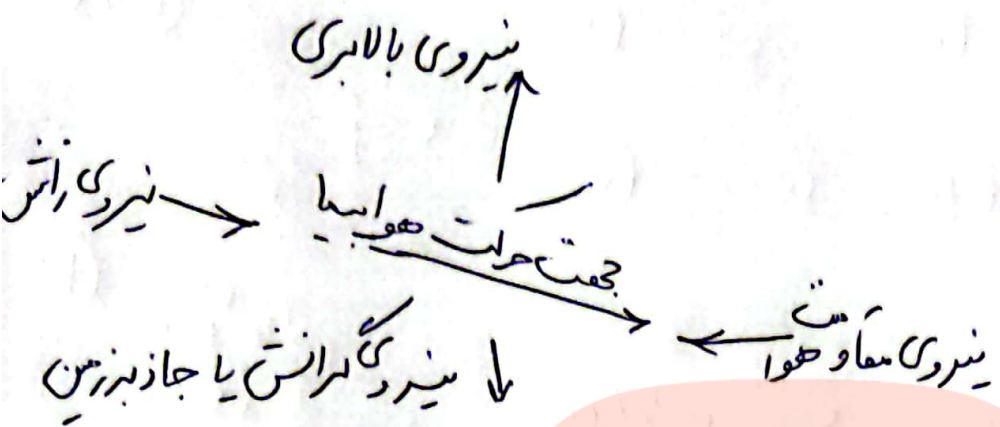 نیروی بالابری
نیروی رانش
جهت حرکت هواپیما
نیروی مقاومت هوا
نیروی گرانش یا جاذبه زمین